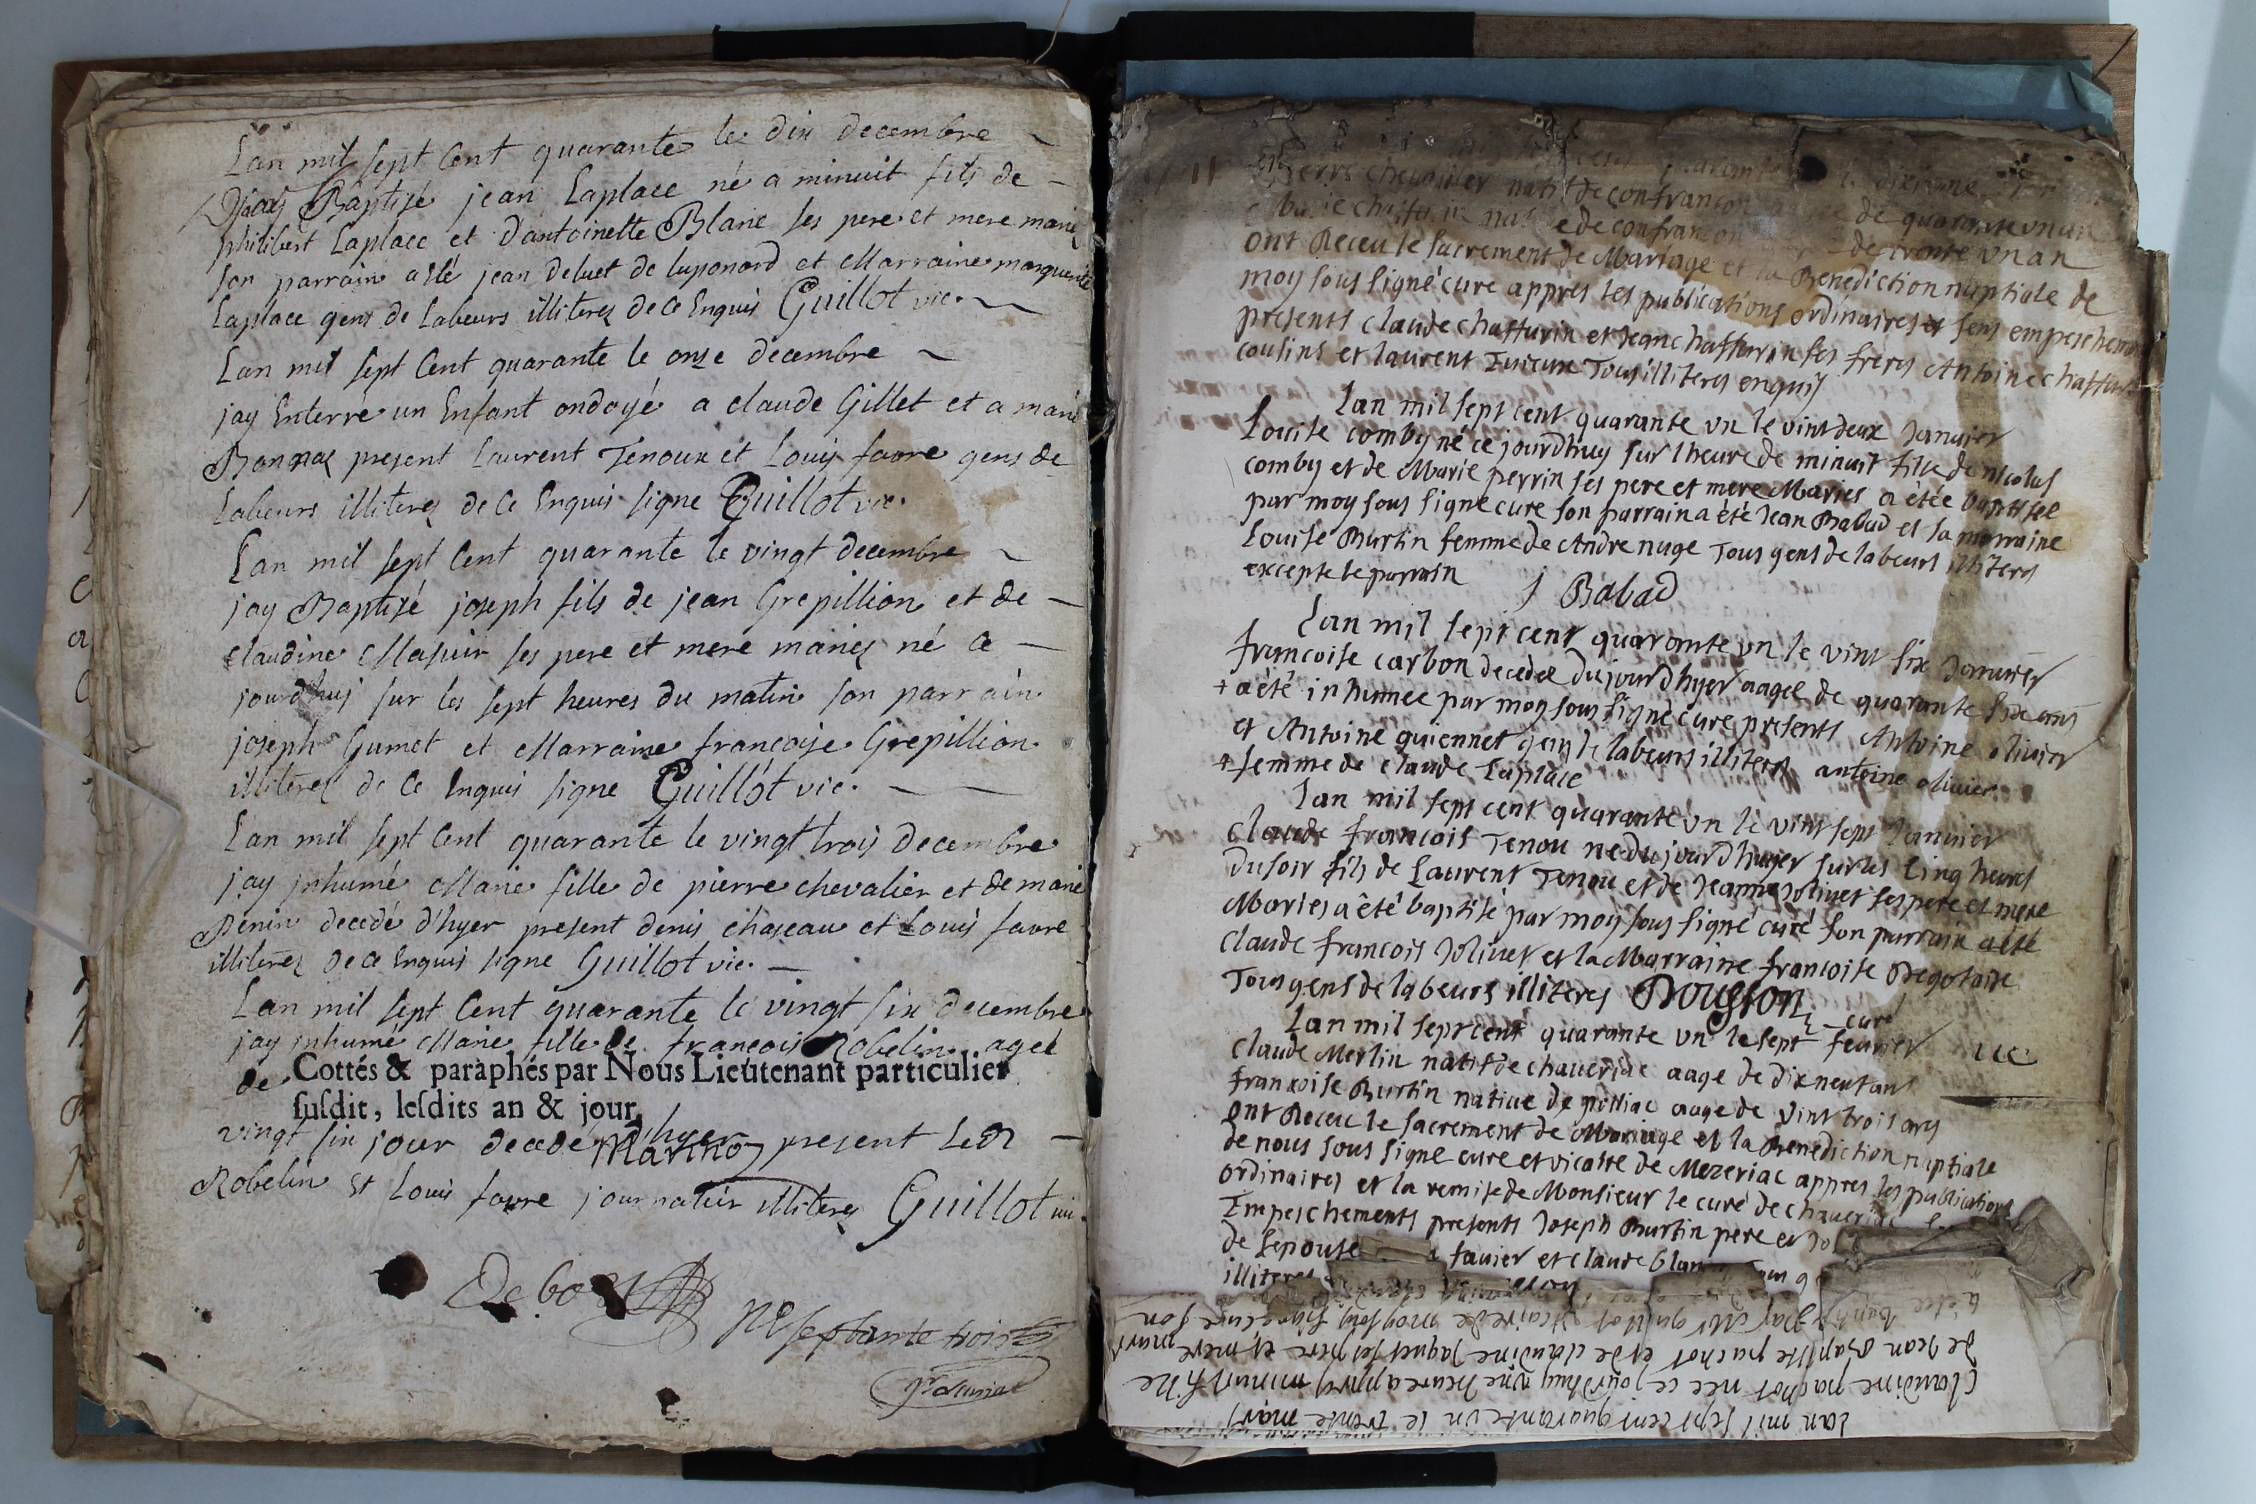 Lan mil sept Cent quarante le dix decembre
Jay Baptizé jean Laplace né a minuit fils de
philibert Laplace et d'antoinette Blanc ses pere et mere mariez
son parrain a été jean deluet de luponord et Marraine marguerite
Laplace gens de Labeurs illiterez de ce Enquis Guillot vic.
Lan mil sept Cent quarante le onze decembre
jay Enterré un Enfant ondoyé a claude Gillet et a marie
present Laurent Tenoux et Louis favre gens de
Labeurs illiterez de ce Enquis signe Guillot vic.
Lan mil sept Cent quarante le vingt decembre
jay Baptizé joseph fils de jean Grepillion et de
claudine Masuir ses pere et mere mariez né ce
jourdhuj sur les sept heures du matin son parrain
joseph Gumet et Marraine françoise Grepillion
illiterez de ce Enquis signe Guillot vic.
Lan mil sept Cent quarante le vingt trois decembre
jay jnhumé Marie fille de pierre chevalier et de marie
Benin decedé d'hyer present denis chaseau et Louis favre
illiterez de ce Enquis signe Guillot vic.
Lan mil sept Cent quarante le vingt six decembre
jay jnhumé Marie fille de francois Robelin ageé
de
Cottés & paraphés par Nous Lieutenant particulier
susdit, lesdits an & jour,
vingt six jour decedé d'hyer present Led
Robelin et Louis favre journalier illiterez Guillot vic.
septante trois
pierre chevallier natif de confrancon de quarante un an
natiue de confrancon de trente un an
ont Receu le sacrement de Mariage et la Benediction nuptiale de
moy sous signé cure appres les publications ordinaires et sens empeschement
presents claude chaffurin et Jean chaffurin ses freres Antoine chaffurin
cousins et laurent Tous illiteres enquis
Lan mil sept cent quarante vn le vint deux Januier
Louise comby né ce jourdhuy sur lheure de minuit fille de nicolas
comby et de Marie perrin ses pere et mere Maries a étée baptisee
par moy sous signe cure son parrain a été Jean Babad et sa marraine
Louise Burtin femme de Andre nuge Tous gens de labeurs illiteres
excepte le parrain J Babad
Lan mil sept cent quarante vn le vint six Januier
francoise carbon decedee dujourdhyer aagee de quarante six ans
+ a été inhumee par moy sous signé cure presents Antoine oliuier
et Antoine guiennet gens de labeurs illiteres antoine oliuier
+ femme de claude Laplace
Lan mil sept cent quarante vn le vint sept Januier
claude francois Tenou ne dujourdhuyer sur les cinq heures
du soir fils de Laurent Tenou et de Jeanne Joliuet ses pere et mere
Maries a été baptisé par moy sous signé curé son parrain a été
claude francois Joliuet et la Marraine francoise
Tous gens de labeurs illiteres Bousson curé
Lan mil sept cent quarante vn le sept feurier
claude Merlin natif de chaueriac aage de dix neuf ans
francoise Burtin natiue de polliac aage de vint trois ans
ont Receu le sacrement de Mariage et la Benediction nuptiale
de nous sous signe cure et vicaire de Mezeriac appres les publications
ordinaires et la remise de Monsieur le curé de chaueriac
Empeschements presents Joseph Burtin pere et
de lepouse fauier et claude
illiteres
de jean baptiste pachot et de claudine Jaquet ses pere et mere maries
Claudine pachot née ce jourdhuy une heure appres minuit fille
Lan mil sept cent quarante vn le trente mars